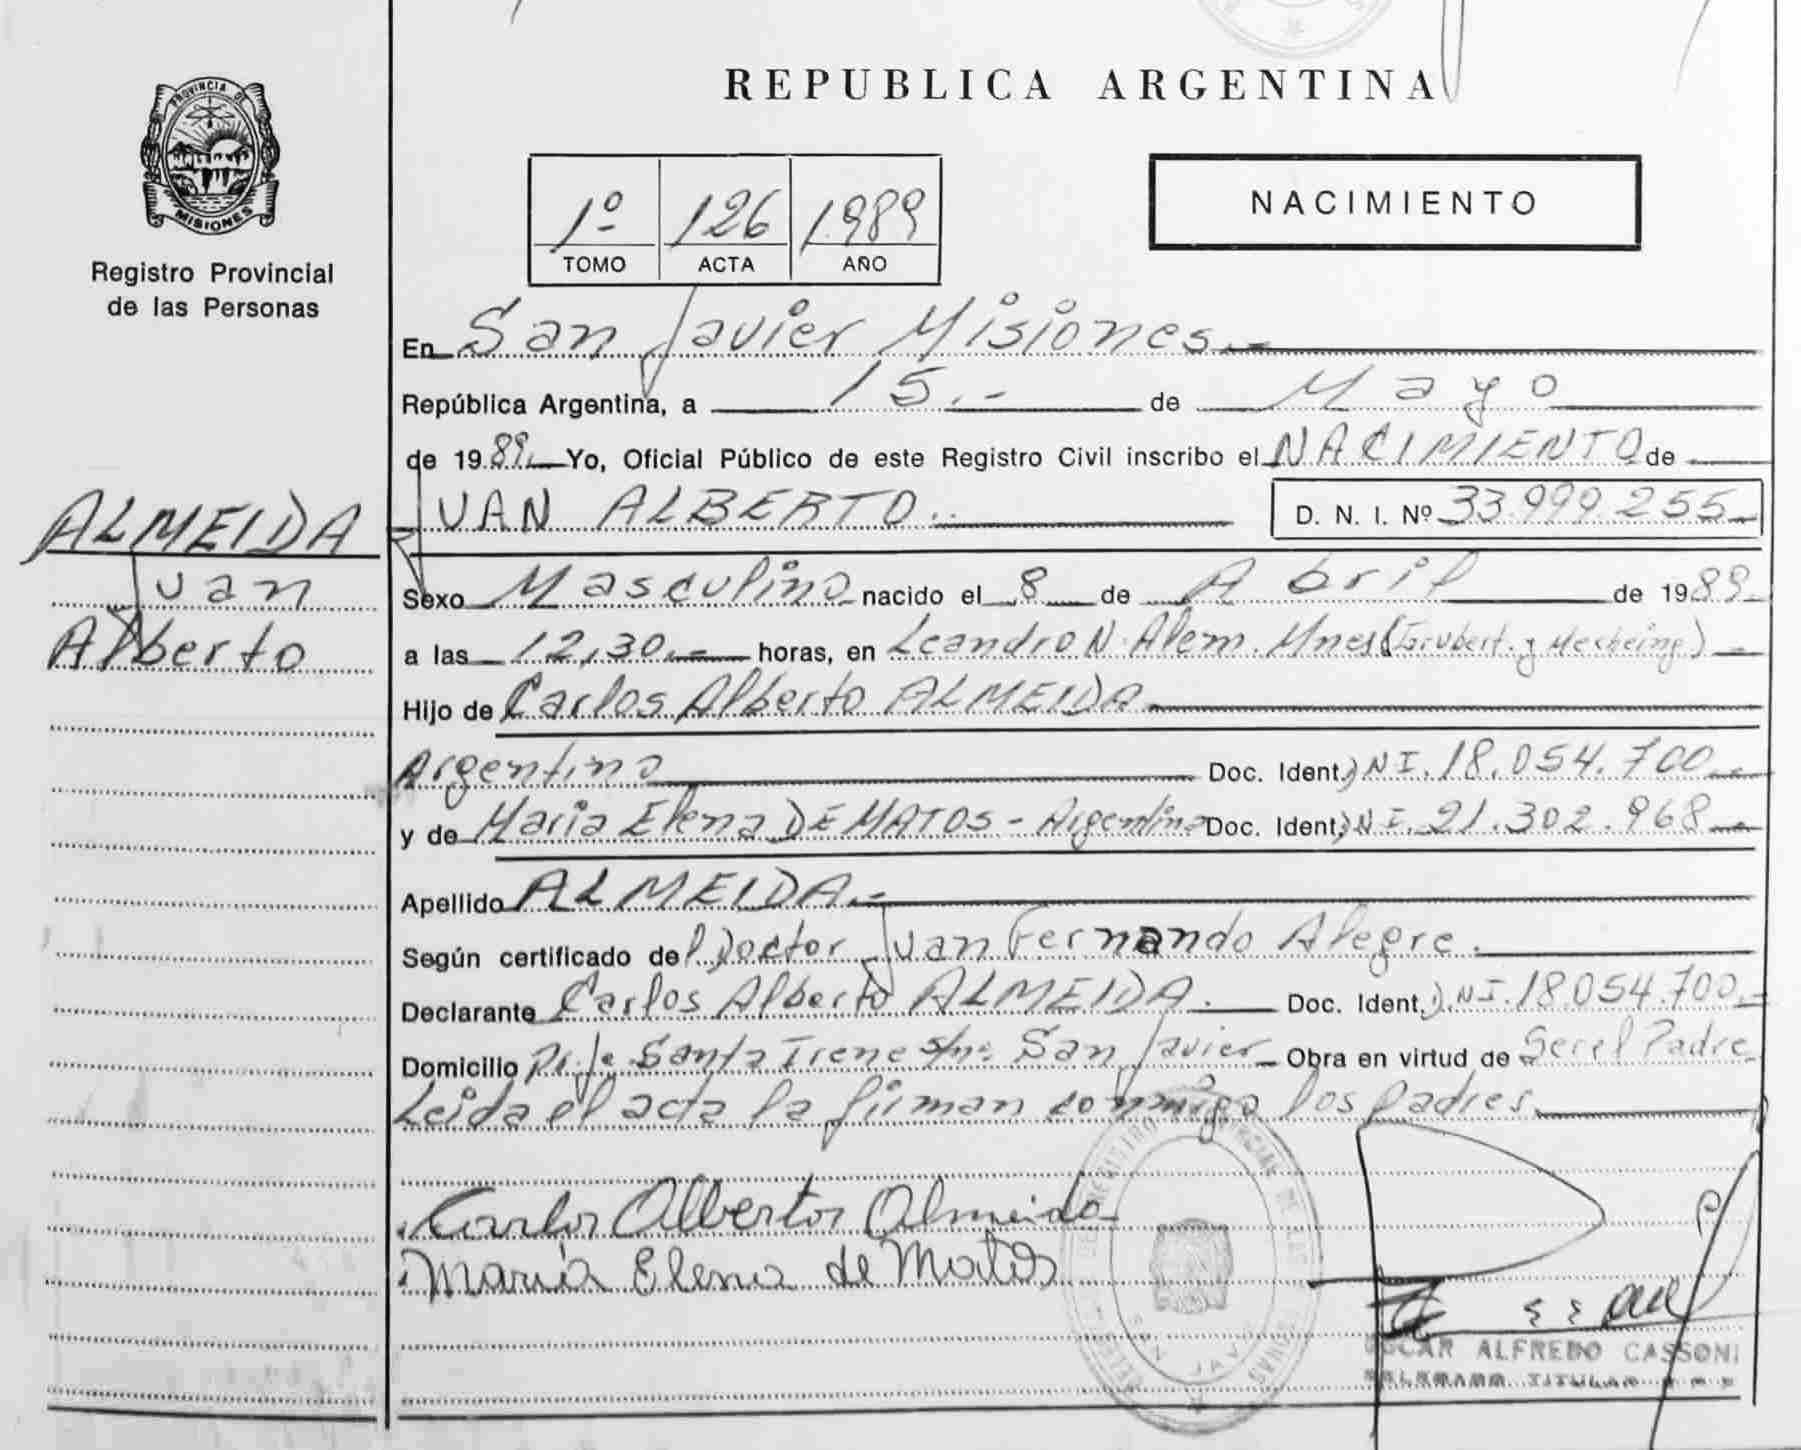 REPUBLICA ARGENTINA
PROVINCIA DE
MISIONES
Registro Provincial
de las Personas
1º 126 1989
TOMO ACTA AÑO
NACIMIENTO
En San Javier Misiones.-
República Argentina, a 15.- de Mayo
de 1989.- Yo, Oficial Público de este Registro Civil inscribo el NACIMIENTO de
JUAN ALBERTO.. D. N. I. Nº 33.999.255
ALMEIDA
Juan
Alberto
Sexo Masculino nacido el 8 de Abril de 1989.
a las 12,30.- horas, en Leandro N. Alem. Mnes
Hijo de Carlos Alberto ALMEIDA
Argentino Doc. Ident. DNI. 18.054.700.-
y de Maria Elena DE MATOS - Argentina Doc. Ident. DNI. 21.302.968.-
Apellido ALMEIDA.-
Según certificado del Doctor Juan Fernando Alegre.
Declarante Carlos Alberto ALMEIDA. Doc. Ident. DNI. 18.054.700.-
Domicilio Pje. Santa Irene s/nº San Javier Obra en virtud de Ser el Padre
Leida el acta la firman conmigo los padres.
Carlos Alberto Almeida
María Elena de Matos
SAN JAVIER
OSCAR ALFREDO CASSONI
TITULAR